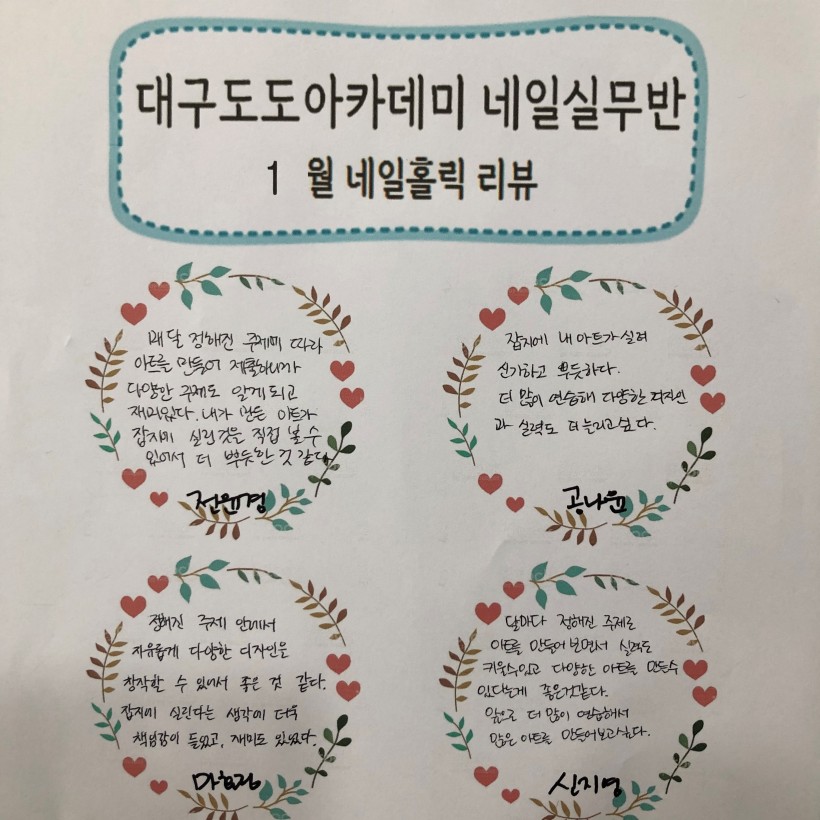 대구도도아카데미 네일실무반
1 월 네일홀릭 리뷰
매달 정해진 주제에 따라
아트를 만들어 제출하니까
다양한 주제도 알게되고
재미있다. 내가 만든 아트가
잡지에 실린것은 직접 볼 수
있어서 더 뿌듯한 것 같다
전윤경
잡지에 내 아트가 실려
신기하고 뿌듯하다.
더 많이 연습해 다양한 디자인
과 실력도 더 늘리고싶다.
공나윤
정해진 주제 안에서
자유롭게 다양한 디자인을
창작할 수 있어서 좋은 것 같다.
잡지에 실린다는 생각에 더욱
책임감이 들었고, 재미도 있었다.
달마다 정해진 주제로
아트를 만들어보면서 실력도
키울수있고 다양한 아트를 만들수
있다는게 좋은것같다.
앞으로 더 많이 연습해서
많은 아트를 만들어보고싶다.
신지영